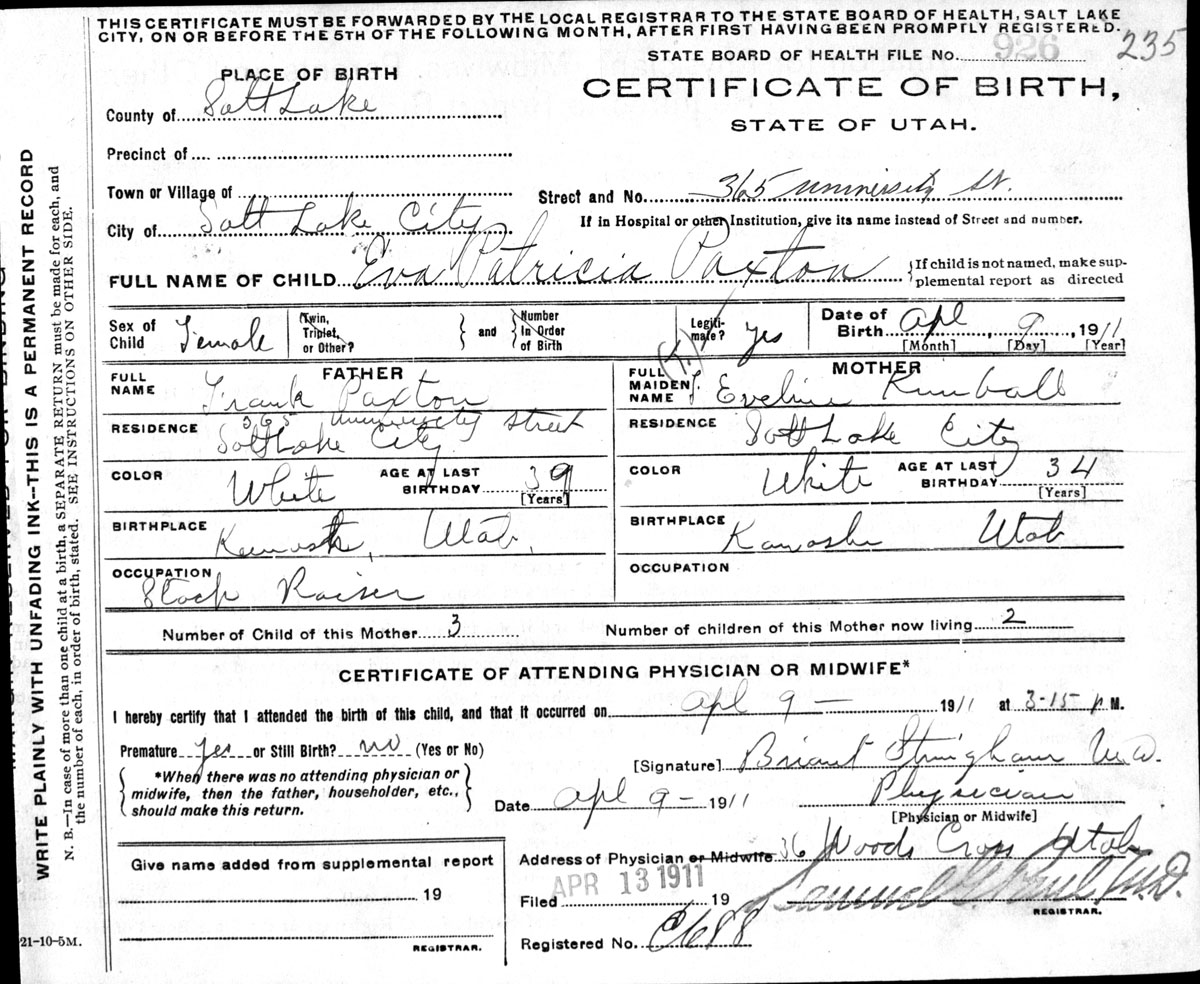 THIS CERTIFICATE MUST BE FORWARDED BY THE LOCAL REGISTRAR TO THE STATE BOARD OF HEALTH, SALT LAKE
CITY, ON OR BEFORE THE 5TH OF THE FOLLOWING MONTH, AFTER FIRST HAVING BEEN PROMPTLY REGISTERED.
STATE BOARD OF HEALTH FILE No. 926 235
PLACE OF BIRTH
CERTIFICATE OF BIRTH,
STATE OF UTAH.
County of Salt Lake
Precinct of
Town or Village of
Street and No. 365 University St.
City of Salt Lake City
If in Hospital or other Institution, give its name instead of Street and number.
FULL NAME OF CHILD Eva Patricia Paxton
{If child is not named, make sup-
plemental report as directed
Sex of Child Female
Twin, Triplet, or Other? } and { Number In Order of Birth
Legiti-mate? yes
Date of Birth Apl 9, 1911
[Month] [Day] [Year]
FATHER
FULL NAME Frank Paxton
RESIDENCE 365 University Street
Salt Lake City
COLOR White AGE AT LAST BIRTHDAY 39 [Years]
BIRTHPLACE Kanosh, Utah,
OCCUPATION Stock Raiser
MOTHER
FULL MAIDEN NAME Eveline Kimball
RESIDENCE Salt Lake City
COLOR White AGE AT LAST BIRTHDAY 34 [Years]
BIRTHPLACE Kanosh Utah
OCCUPATION
Number of Child of this Mother 3
Number of children of this Mother now living 2
CERTIFICATE OF ATTENDING PHYSICIAN OR MIDWIFE*
I hereby certify that I attended the birth of this child, and that it occurred on Apl 9 — 1911 at 3-15 p M.
Premature yes or Still Birth? no (Yes or No)
{*When there was no attending physician or
midwife, then the father, householder, etc.,
should make this return.}
[Signature] Briant Stringham M.D.
Date Apl 9 - 1911
Physician
[Physician or Midwife]
Give name added from supplemental report
19
REGISTRAR.
Address of Physician or Midwife 36 Woods Cross Utah
Filed APR 13 1911 19
REGISTRAR.
Registered No. C688
21-10-5M.
WRITE PLAINLY WITH UNFADING INK--THIS IS A PERMANENT RECORD
N. B.—In case of more than one child at a birth, a SEPARATE RETURN must be made for each, and
the number of each, in order of birth, stated. SEE INSTRUCTIONS ON OTHER SIDE.